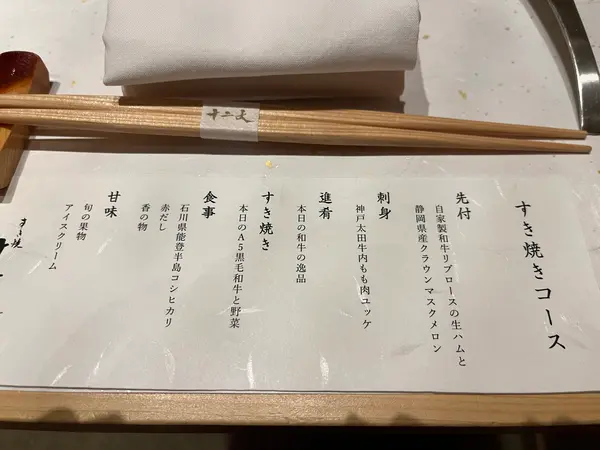 十二支
すき焼きコース
先付
自家製和牛リブロースの生ハムと
静岡県産クラウンマスクメロン
刺身
神戸太田牛内もも肉ユッケ
進肴
本日の和牛の逸品
すき焼き
本日のA5黒毛和牛と野菜
食事
石川県能登半島コシヒカリ
赤だし
香の物
甘味
旬の果物
アイスクリーム
すき焼